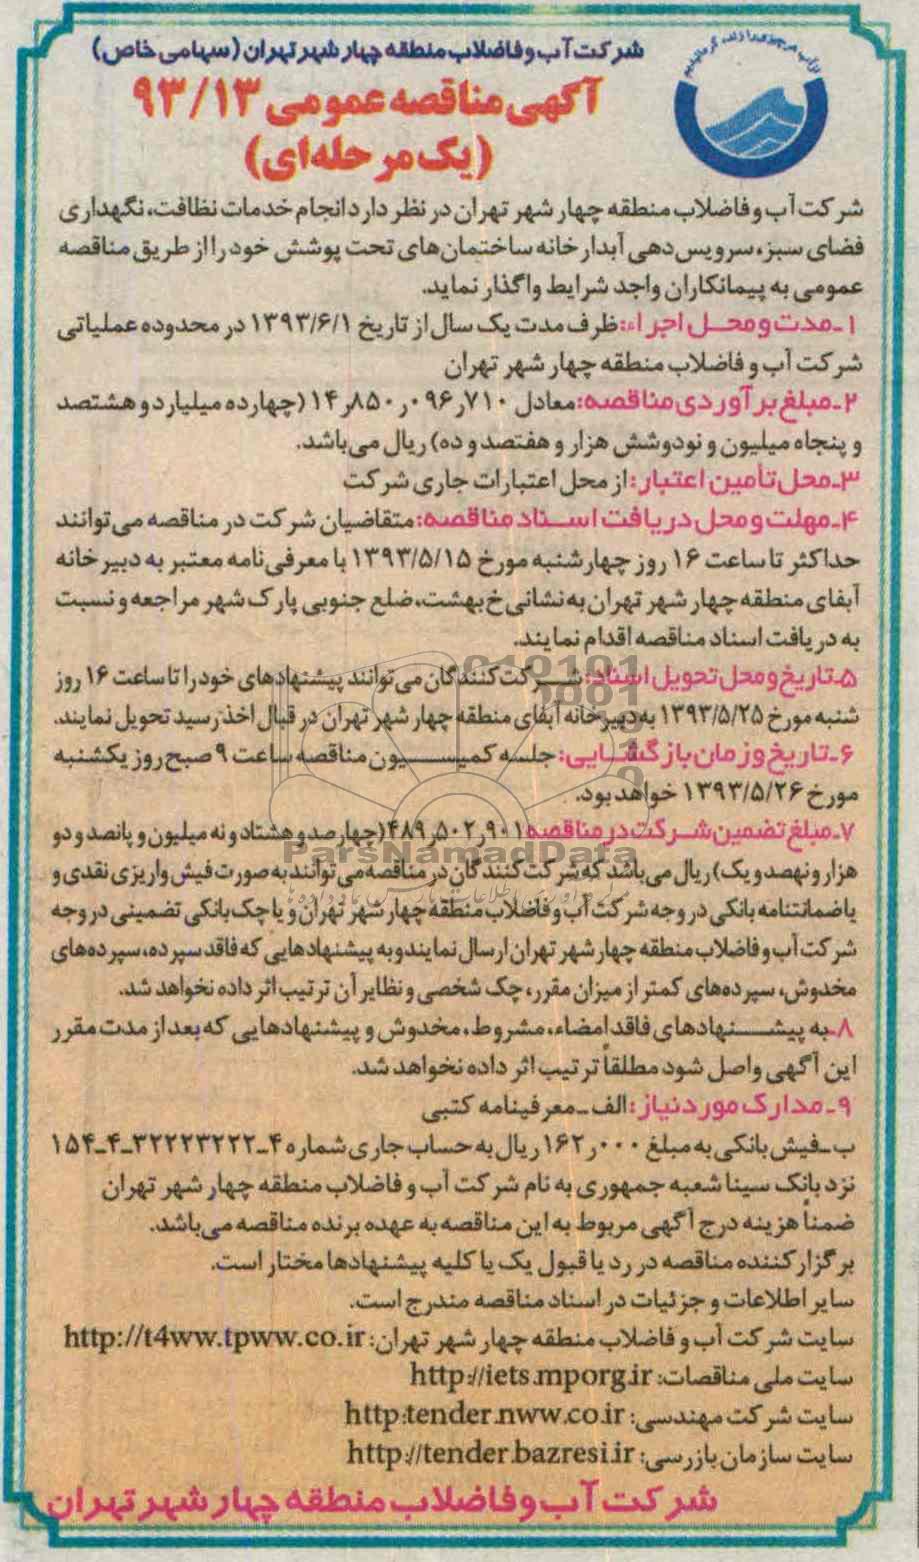 از آب هر چیز را زنده گردانیدیم
شرکت آب و فاضلاب منطقه چهار شهر تهران (سهامی خاص)
آگهی مناقصه عمومی ۹۳/۱۳
(یک مرحله‌ای)
شرکت آب و فاضلاب منطقه چهار شهر تهران در نظر دارد انجام خدمات نظافت، نگهداری
فضای سبز، سرویس‌دهی آبدارخانه ساختمان‌های تحت پوشش خود را از طریق مناقصه
عمومی به پیمانکاران واجد شرایط واگذار نماید.
۱ـ مدت و محل اجراء: ظرف مدت یک سال از تاریخ ۱۳۹۳/۶/۱ در محدوده عملیاتی
شرکت آب و فاضلاب منطقه چهار شهر تهران
۲ـ مبلغ برآوردی مناقصه: معادل ۱۴٫۸۵۰٫۰۹۶٫۷۱۰ (چهارده میلیارد و هشتصد
و پنجاه میلیون و نودوشش هزار و هفتصد و ده) ریال می‌باشد.
۳ـ محل تأمین اعتبار: از محل اعتبارات جاری شرکت
۴ـ مهلت و محل دریافت اسناد مناقصه: متقاضیان شرکت در مناقصه می‌توانند
حداکثر تا ساعت ۱۶ روز چهارشنبه مورخ ۱۳۹۳/۵/۱۵ با معرفی‌نامه معتبر به دبیرخانه
آبفای منطقه چهار شهر تهران به نشانی خ بهشت، ضلع جنوبی پارک شهر مراجعه و نسبت
به دریافت اسناد مناقصه اقدام نمایند.
۵ـ تاریخ و محل تحویل اسناد: شرکت‌کنندگان می‌توانند پیشنهادهای خود را تا ساعت ۱۶ روز
شنبه مورخ ۱۳۹۳/۵/۲۵ به دبیرخانه آبفای منطقه چهار شهر تهران در قبال اخذ رسید تحویل نمایند.
۶ـ تاریخ و زمان بازگشایی: جلسه کمیسیون مناقصه ساعت ۹ صبح روز یکشنبه
مورخ ۱۳۹۳/۵/۲۶ خواهد بود.
۷ـ مبلغ تضمین شرکت در مناقصه ۴۸۹٫۵۰۲٫۹۰۱ (چهارصد و هشتاد و نه میلیون و پانصد و دو
هزار و نهصد و یک) ریال می‌باشد که شرکت‌کنندگان در مناقصه می‌توانند به صورت فیش واریزی نقدی و
یا ضمانتنامه بانکی در وجه شرکت آب و فاضلاب منطقه چهار شهر تهران و یا چک بانکی تضمینی در وجه
شرکت آب و فاضلاب منطقه چهار شهر تهران ارسال نمایند و به پیشنهادهایی که فاقد سپرده، سپرده‌های
مخدوش، سپرده‌های کمتر از میزان مقرر، چک شخصی و نظایر آن ترتیب اثر داده نخواهد شد.
۸ـ به پیشنهادهای فاقد امضاء، مشروط، مخدوش و پیشنهادهایی که بعد از مدت مقرر
این آگهی واصل شود مطلقاً ترتیب اثر داده نخواهد شد.
۹ـ مدارک مورد نیاز: الف ـ معرفینامه کتبی
ب ـ فیش بانکی به مبلغ ۱۶۲٫۰۰۰ ریال به حساب جاری شماره ۴ـ۳۲۲۲۳۲۲۲ـ۴ـ۱۵۴
نزد بانک سینا شعبه جمهوری به نام شرکت آب و فاضلاب منطقه چهار شهر تهران
ضمناً هزینه درج آگهی مربوط به این مناقصه به عهده برنده مناقصه می‌باشد.
برگزارکننده مناقصه در رد یا قبول یک یا کلیه پیشنهادها مختار است.
سایر اطلاعات و جزئیات در اسناد مناقصه مندرج است.
سایت شرکت آب و فاضلاب منطقه چهار شهر تهران: http://t4ww.tpww.co.ir
سایت ملی مناقصات: http://iets.mporg.ir
سایت شرکت مهندسی: http:tender.nww.co.ir
سایت سازمان بازرسی: http://tender.bazresi.ir
شرکت آب و فاضلاب منطقه چهار شهر تهران
ParsNamadData